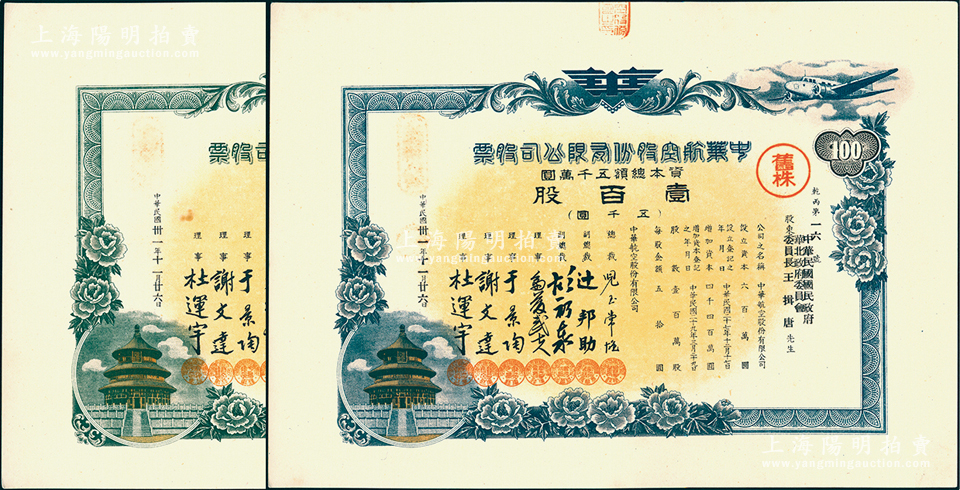 上海陽明拍賣
www.yangmingauction.com
司股票
中華民國卅一年十一月廿六日
理事
于景陶
理事
謝文達
理事
杜運宇
100
中華航空股份有限公司股票
資本總額五千萬圓
壹百股
(五千圓)
舊株
中華民國國民政府
華北政務委員會
委員長王揖唐先生
公司之名稱 中華航空股份有限公司
設立資本 六百萬圓
設立登記之年月日 中華民國二十七年十二月十七日
增加資本 四千四百萬圓
增加資本登記之年月日
股數 壹百萬股
每股金額 五拾圓
中華航空股份有限公司
總裁 兒玉常雄
副總裁 辻邦助
副總裁
理事
理事 于景陶
理事 謝文達
理事 杜運宇
中華民國卅一年十一月廿六日
上海陽明拍賣
www.yangmingauction.com
上海陽明拍賣
www.yangmingauction.com